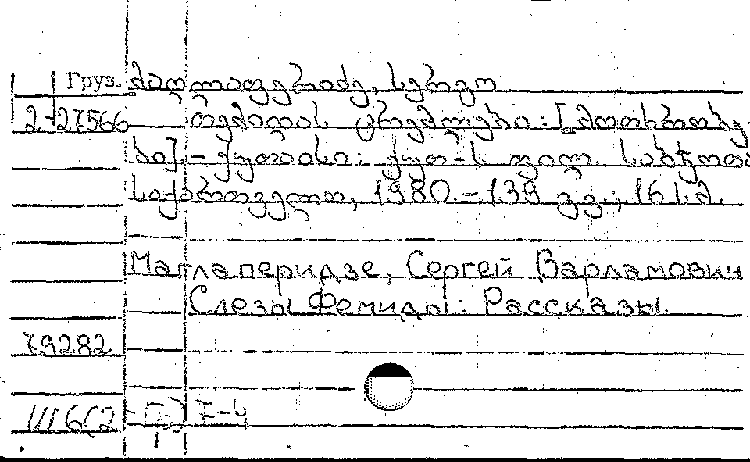 Груз. მაღლაფერიძე, სერგო
2-27566 თემიდას ცრემლები: [მოთხრობე
ბი].- ქუთაისი: ქუთ-ს ფილ. საბჭოთა
საქართველო, 1980.-139 გვ.; 16 ს.მ.
Маглаперидзе, Сергей Варламович
Слезы Фемиды: Рассказы.
79282